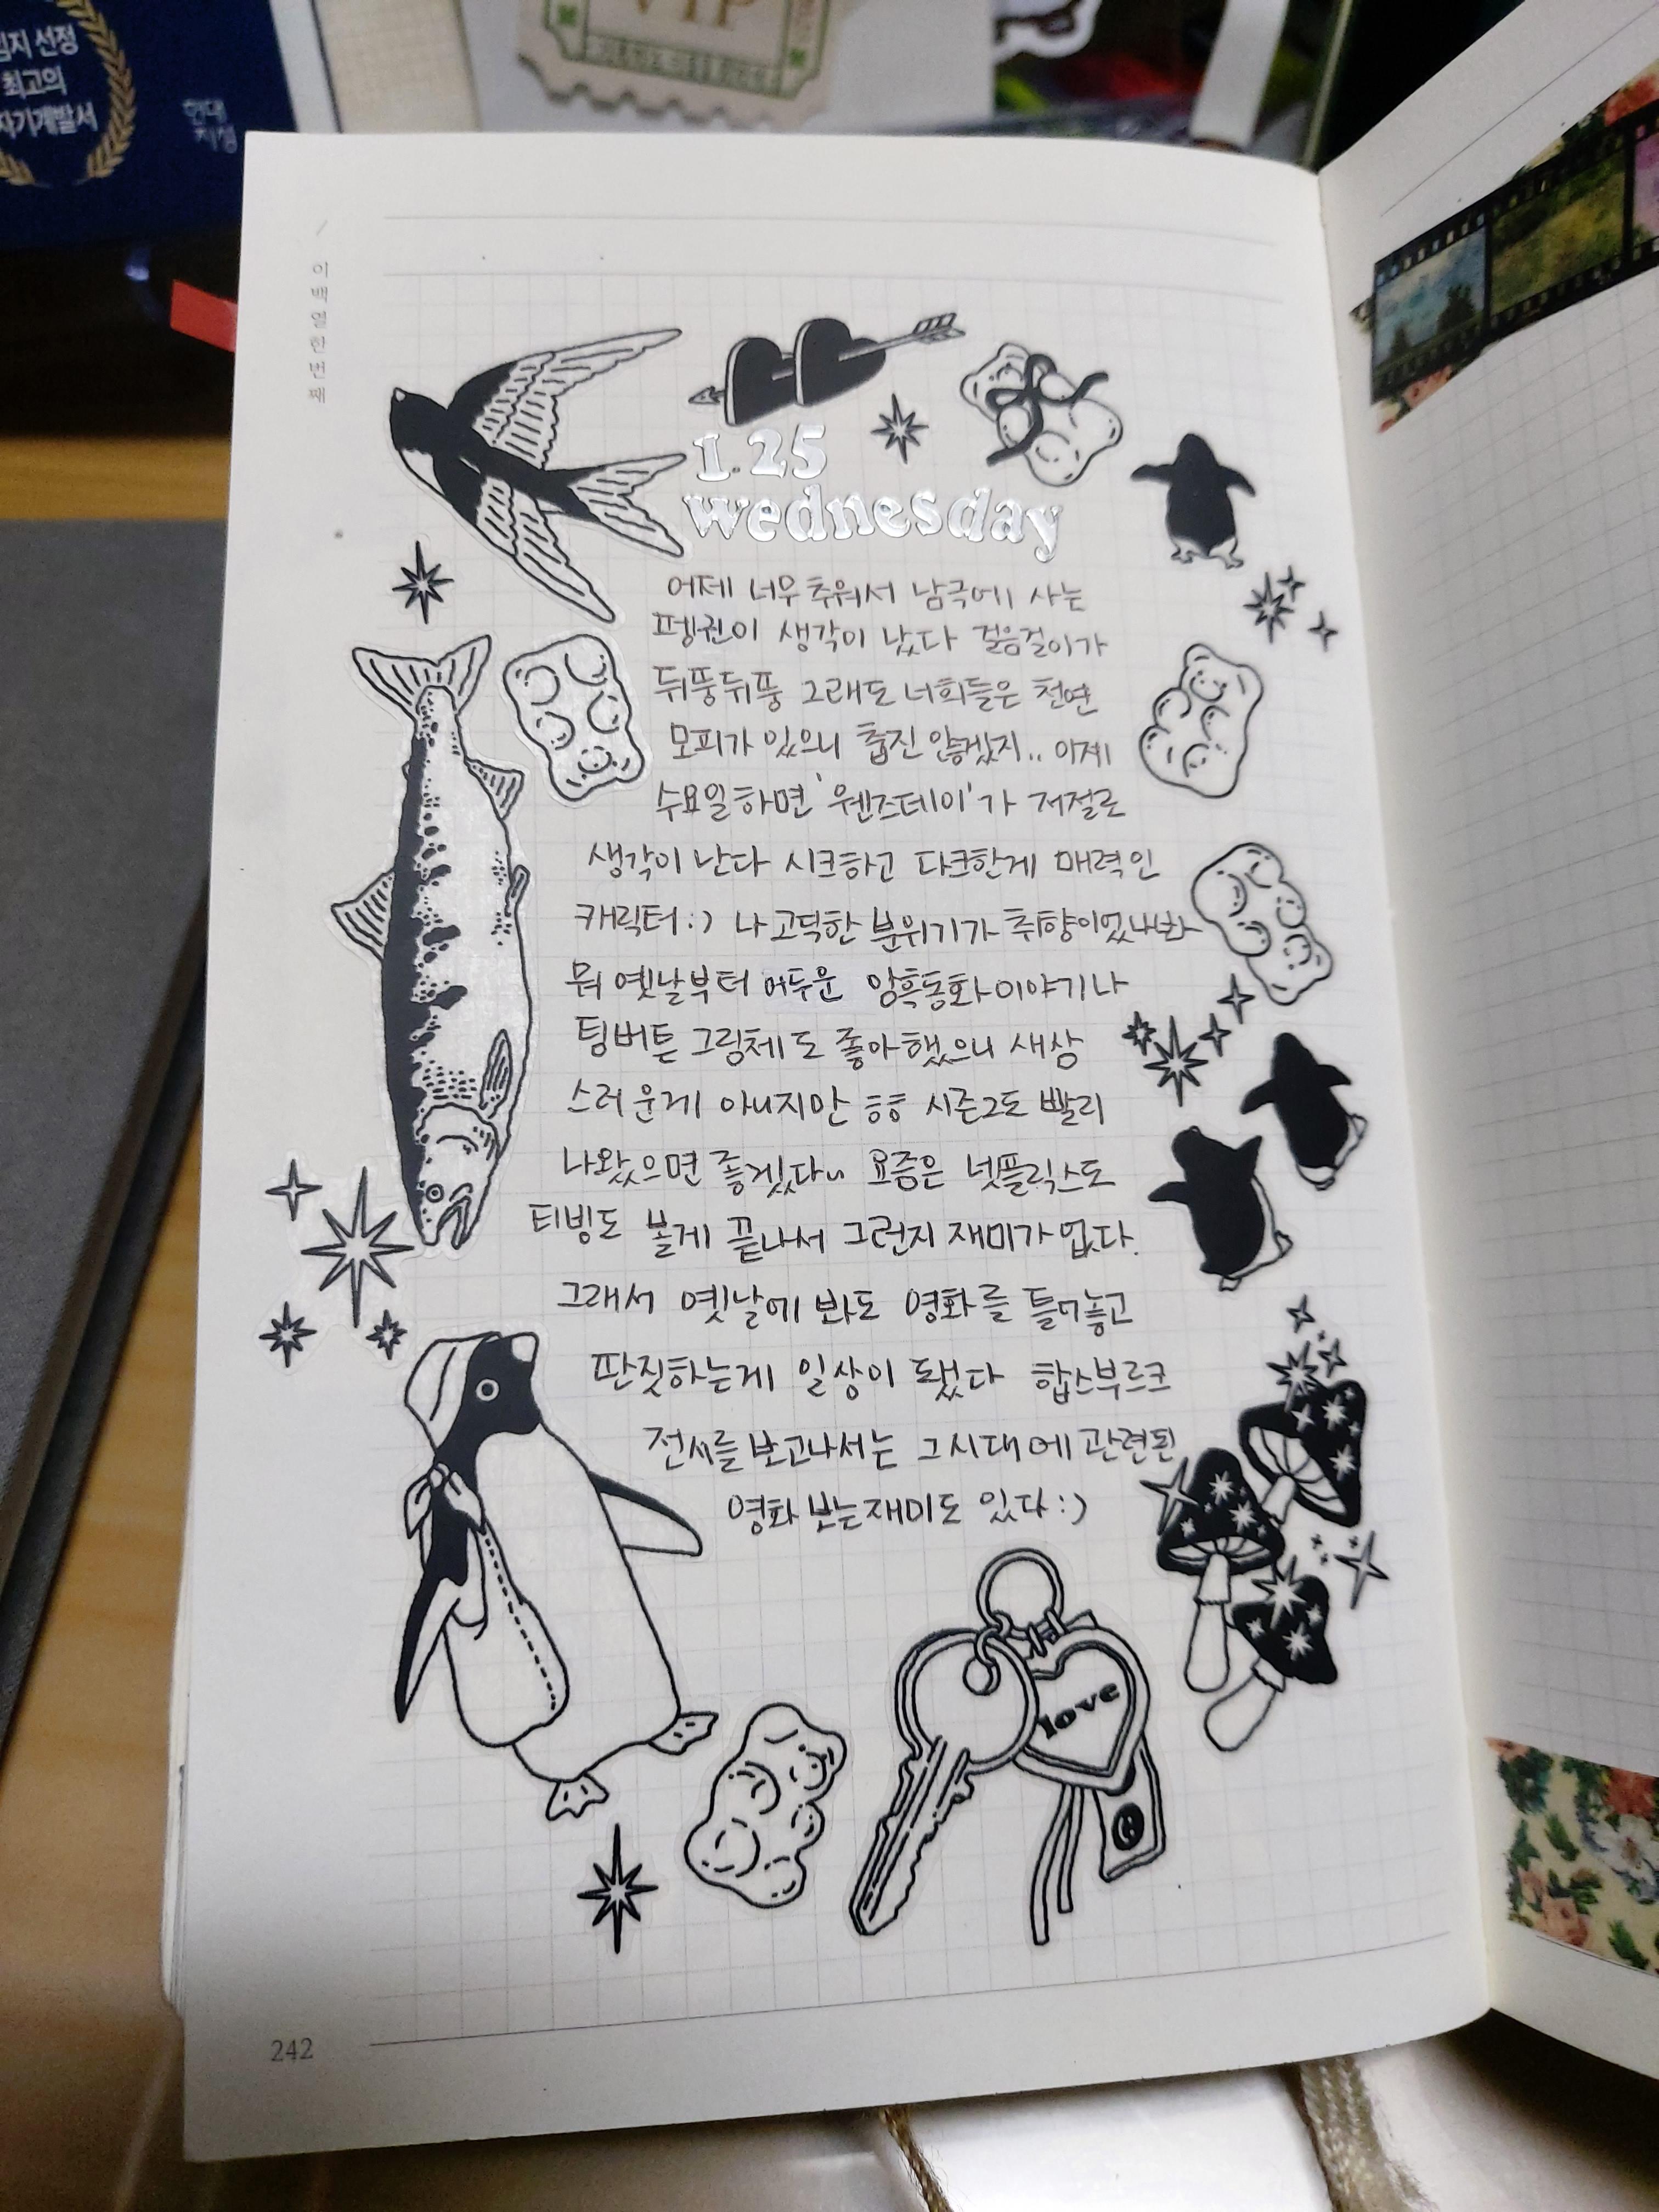 심지 선정
최고의
자기계발서
현대
지성
VIP
이백열한번째
1.25
wednesday
어제 너무 추워서 남극에 사는
펭귄이 생각이 났다 걸음걸이가
뒤뚱뒤뚱 그래도 너희들은 천연
모피가 있으니 춥진 않겠지.. 이제
수요일하면 '웬즈데이'가 저절로
생각이 난다 시크하고 다크한게 매력인
캐릭터:) 나 고딕한 분위기가 취향이었나봐
뭐 옛날부터 어두운 암흑동화이야기나
팀버튼 그림체도 좋아했으니 새삼
스러운게 아니지만 흐흐 시즌2도 빨리
나왔으면 좋겠다~ 요즘은 넷플릭스도
티빙도 볼게 끝나서 그런지 재미가 없다.
그래서 옛날에 봐도 영화를 틀어놓고
딴짓하는게 일상이 됐다 합스부르크
전시를 보고나서는 그시대에 관련된
영화 보는재미도 있다:)
love
242